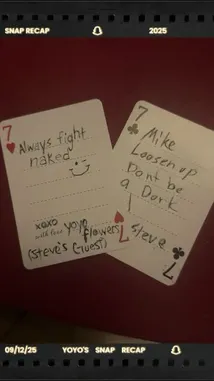 SNAP RECAP
2025
7
Always fight
naked
xoxo
with love yoyo
flowers
(steve's Guest)
7
7
Mike
Loosen up
Dont be
a Dork
Steve
7
09/12/25
YOYO'S SNAP RECAP